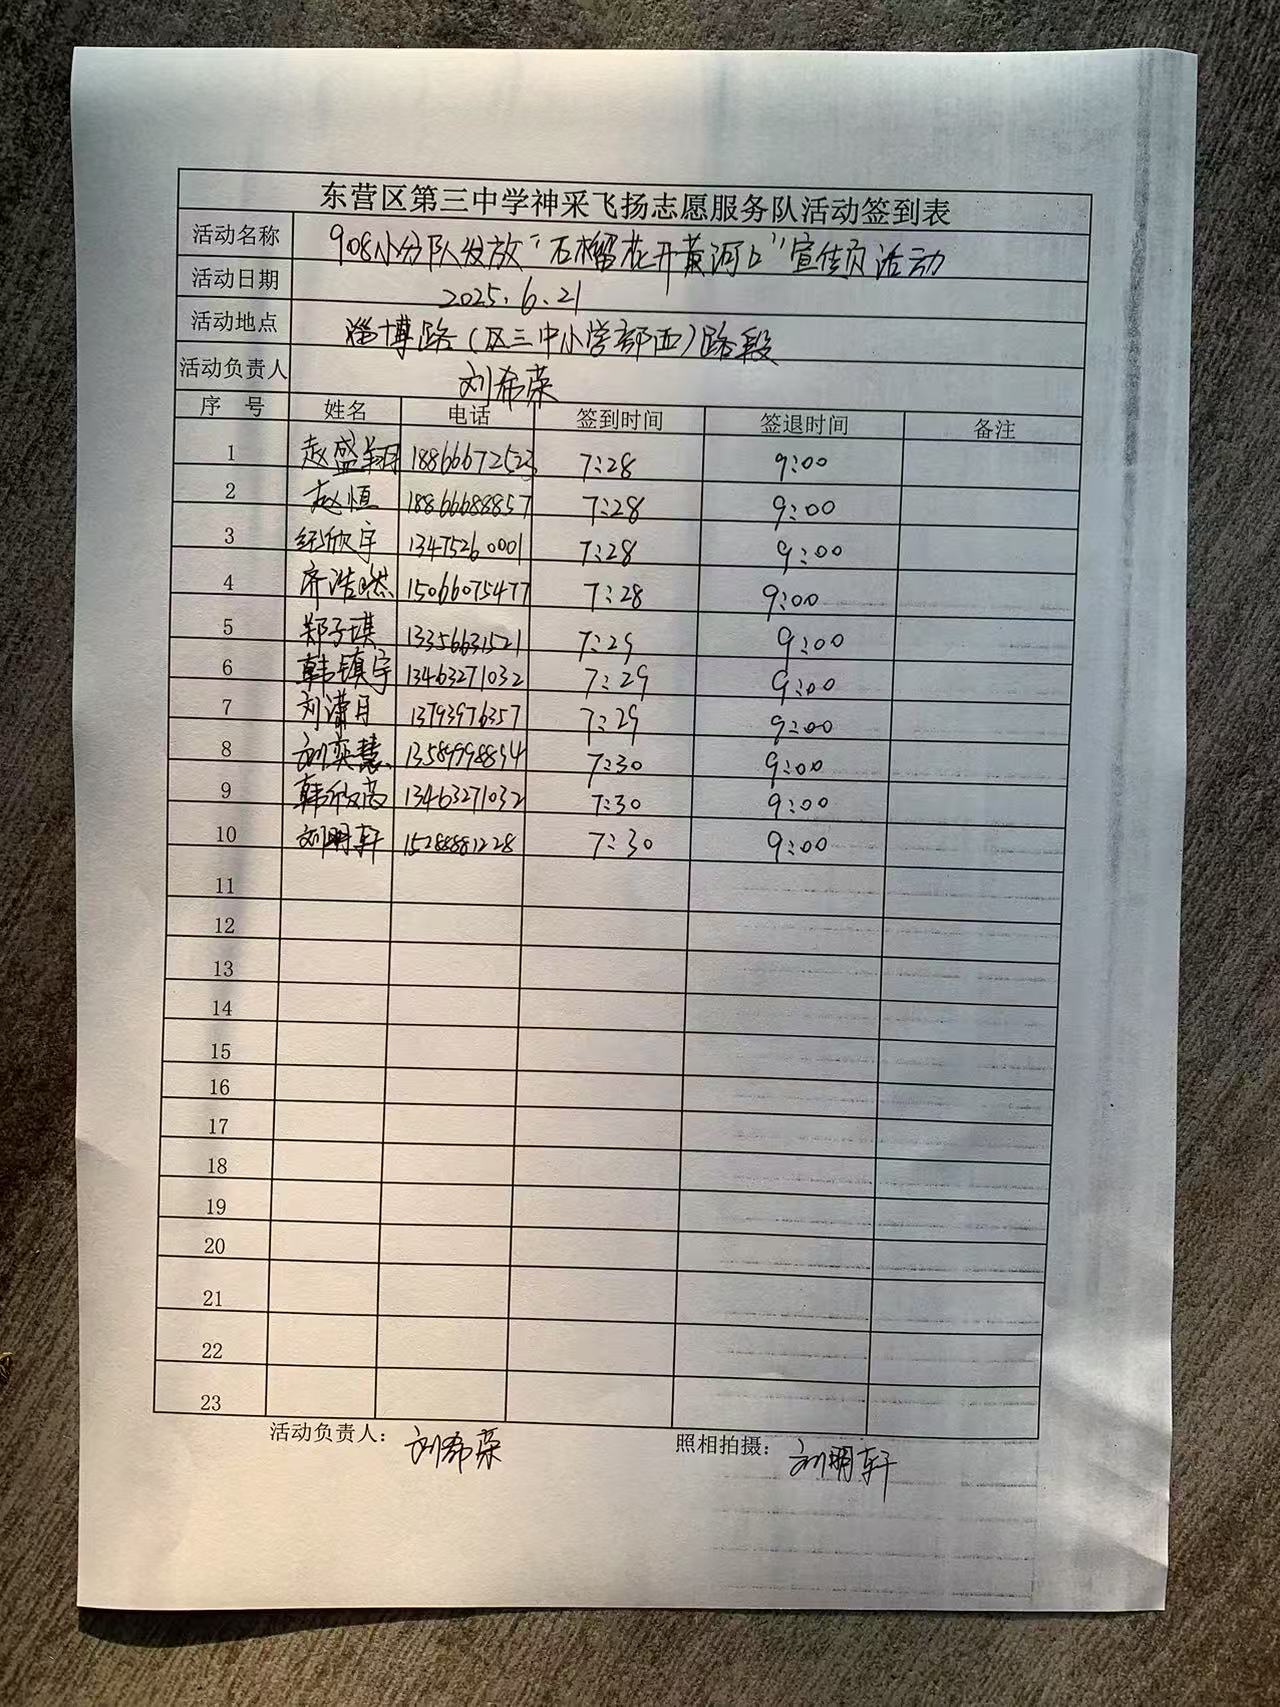 东营区第三中学神采飞扬志愿服务队活动签到表
活动名称 908小分队发放“石榴花开黄河口”宣传页活动
活动日期 2025.6.21
活动地点 淄博路(区三中小学部西)路段
活动负责人 刘希荣
序 号 姓名 电话 签到时间 签退时间 备注
1 赵盛翔 18866672523 7:28 9:00
2 赵恒 18866688857 7:28 9:00
3 纪欣宇 13475260001 7:28 9:00
4 齐浩然 15066075477 7:28 9:00
5 郑子琪 13356631521 7:29 9:00
6 韩镇宇 13463271032 7:29 9:00
7 刘潇月 13793976357 7:29 9:00
8 刘奕慧 13589998894 7:30 9:00
9 韩欣芮 13463271032 7:30 9:00
10 刘明轩 15288881228 7:30 9:00
11
12
13
14
15
16
17
18
19
20
21
22
23
活动负责人: 刘希荣 照相拍摄: 刘明轩